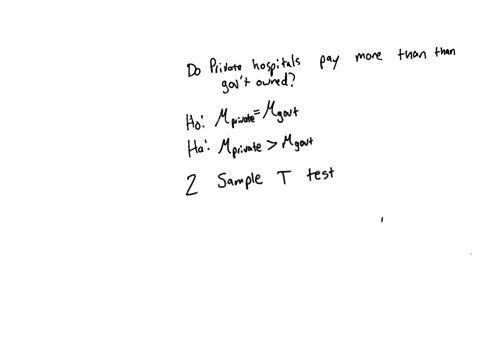 Do Private hospitals pay more than than
gov't owned?
Ho: μprivate = μgovt
Ha: μprivate > μgovt
2 Sample T test